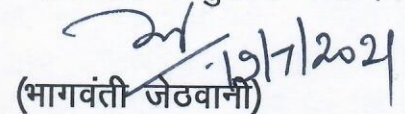 19/7/2021
(भागवंती जेठवानी)